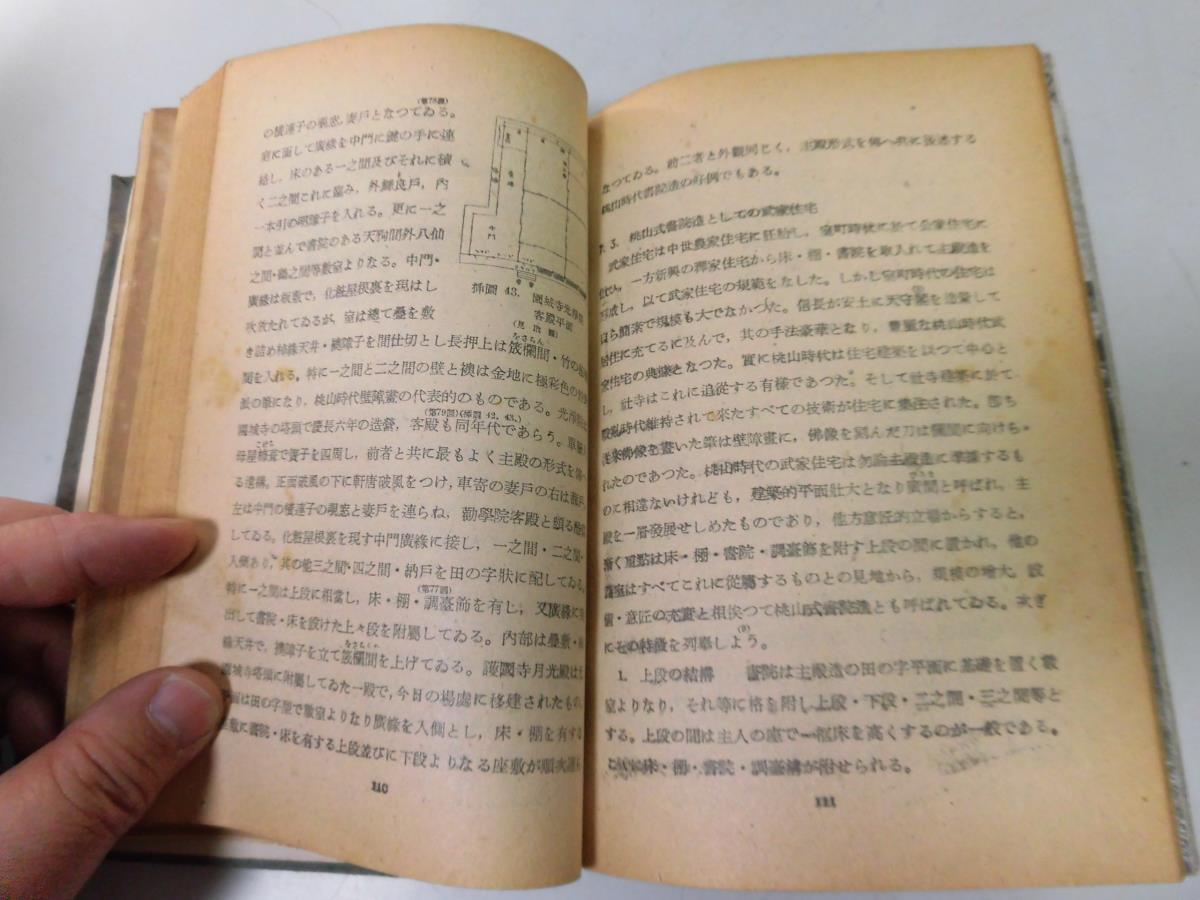 (第78圖)
の櫺連子の覗窓,妻戸となつてゐる。
庭に面して廣縁を中門に鍵の手に連
絡し,床のある一之間及びそれに續
く二之間これに臨み,外舞良戸,内
一本引の明障子を入れる。更に一之
間と並んで書院のある天狗間外八仙
之間・鶴之間等數室よりなる。中門・
廣縁は板敷で,化粧屋根裏を現はし
吹放たれてゐるが,室は總て疊を敷
き詰め棹緣天井・襖障子を間仕切とし長押上は筬欄間・竹の
間を入れる。特に一之間と二之間の壁と襖は金地に極彩色の
派の筆になり,桃山時代壁障畫の代表的のものである。光淨院は
(第79圖)(挿圖 42. 43.)
園城寺の塔頭で慶長六年の造營,客殿も同年代であらう。單層
母屋杮葺で簀子を四周し,前者と共に最もよく主殿の形式を備へ
る遺構。正面破風の下に軒唐破風をつけ,車寄の妻戸の右は蔀戸
左は中門の櫺連子の覗窓と妻戸を連らね,勸學院客殿と頗る酷似
してゐる。化粧屋根裏を現す中門廣縁に接し,一之間・二之間・
入側あり,其の他三之間・四之間・納戸を田の字狀に配してゐる。
(第77圖)
特に一之間は上段に相當し,床・棚・調臺飾を有し,又廣縁に
出して書院・床を設けた上々段を附屬してゐる。内部は疊敷・
緣天井で,襖障子を立て筬欄間を上げてゐる。護國寺月光殿は
園城寺塔頭に附屬してゐた一殿で,今日の場處に移建されたもの。
平面は田の字型で數室よりなり廣縁を入側とし,床・棚を有する
座敷に書院・床を有する上段並びに下段よりなる座敷が順次
挿圖 43. 園城寺光淨院
客殿平面
110
なつてゐる。前二者と外觀同じく,主殿形式を備へ共に後述する
桃山時代書院造の好例でもある。
7. 3. 桃山式書院造としての武家住宅
武家住宅は中世農家住宅に胚胎し,室町時代に於て公家住宅に
一方新興の禪家住宅から床・棚・書院を取入れて主殿造を
形成し,以て武家住宅の規範をなした。しかし室町時代の住宅は
ほら簡素で規模も大でなかつた。信長が安土に天守閣を造營して
居住に充てるに及んで,其の手法豪華となり,豐麗な桃山時代武
家住宅の典據となつた。實に桃山時代は住宅建築を以つて中心と
し,社寺はこれに追從する有樣であつた。そして社寺建築に於て
戰亂時代維持されて來たすべての技術が住宅に集注された。卽ち
從來佛像を畫いた筆は壁障畫に,佛像を刻んだ刀は欄間に向けら
れたのであつた。桃山時代の武家住宅は勿論主殿造に準據するも
のに相違ないけれども,建築的平面壯大となり廣間と呼ばれ,主
殿を一層發展せしめたものであり,他方意匠的立場からすると,
漸く重點は床・棚・書院・調臺飾を附す上段の間に置かれ,他の
諸室はすべてこれに從屬するものとの見地から,規模の增大,設
備・意匠の充實と相俟つて桃山式書院造とも呼ばれてゐる。次ぎ
にその特徴を列擧しよう。
1. 上段の結構 書院は主殿造の田の字平面に基礎を置く數
室よりなり,それ等に格を附し上段・下段・二之間・三之間等と
する。上段の間は主人の座で一框床を高くするのが一般である。
これに床・棚・書院・調臺構が附せられる。
111